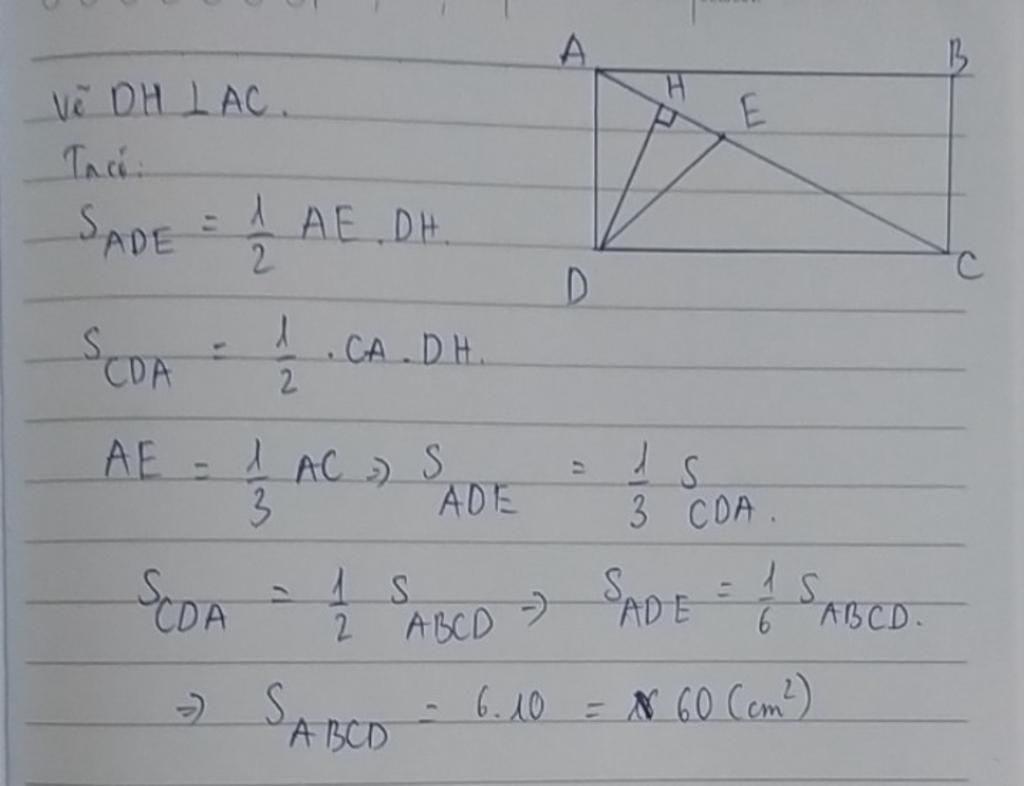 A B
Vẽ DH ⊥ AC.
H E
Ta có:
S_ADE = 1/2 AE . DH.
D C
S_CDA = 1/2 . CA . DH.
AE = 1/3 AC => S_ADE = 1/3 S_CDA.
S_CDA = 1/2 S_ABCD => S_ADE = 1/6 S_ABCD.
=> S_ABCD = 6.10 = 60 (cm²)